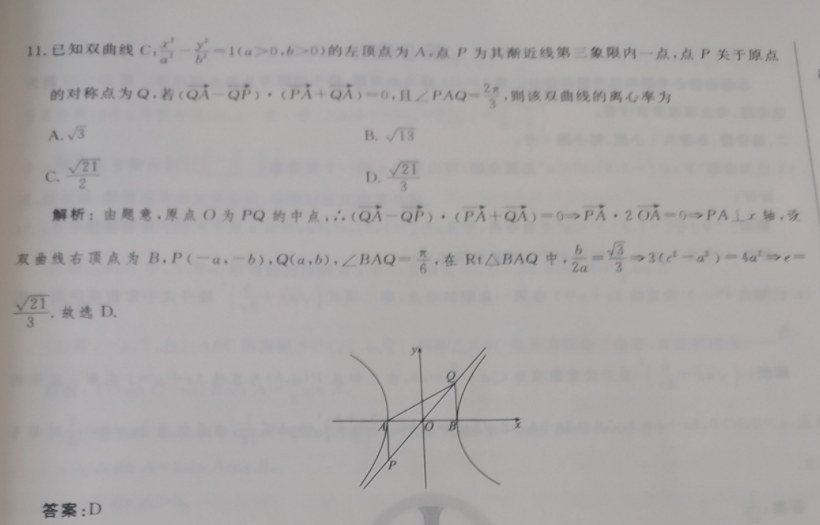 11.已知双曲线 C:x²/a²-y²/b²=1(a>0,b>0)的左顶点为 A,点 P 为其渐近线第三象限内一点,点 P 关于原点
的对称点为 Q,若(QA→-QP→)·(PA→+QA→)=0,且∠PAQ=2π/3,则该双曲线的离心率为
A.√3 B.√13
C.√21/2 D.√21/3
解析:由题意,原点 O 为 PQ 的中点,∴(QA→-QP→)·(PA→+QA→)=0⇒PA→·2OA→=0⇒PA⊥x 轴,设
双曲线右顶点为 B,P(-a,-b),Q(a,b),∠BAQ=π/6,在 Rt△BAQ 中,b/2a=√3/3⇒3(c²-a²)=4a²⇒e=
√21/3.故选 D.
y
Q
A O B x
P
答案:D